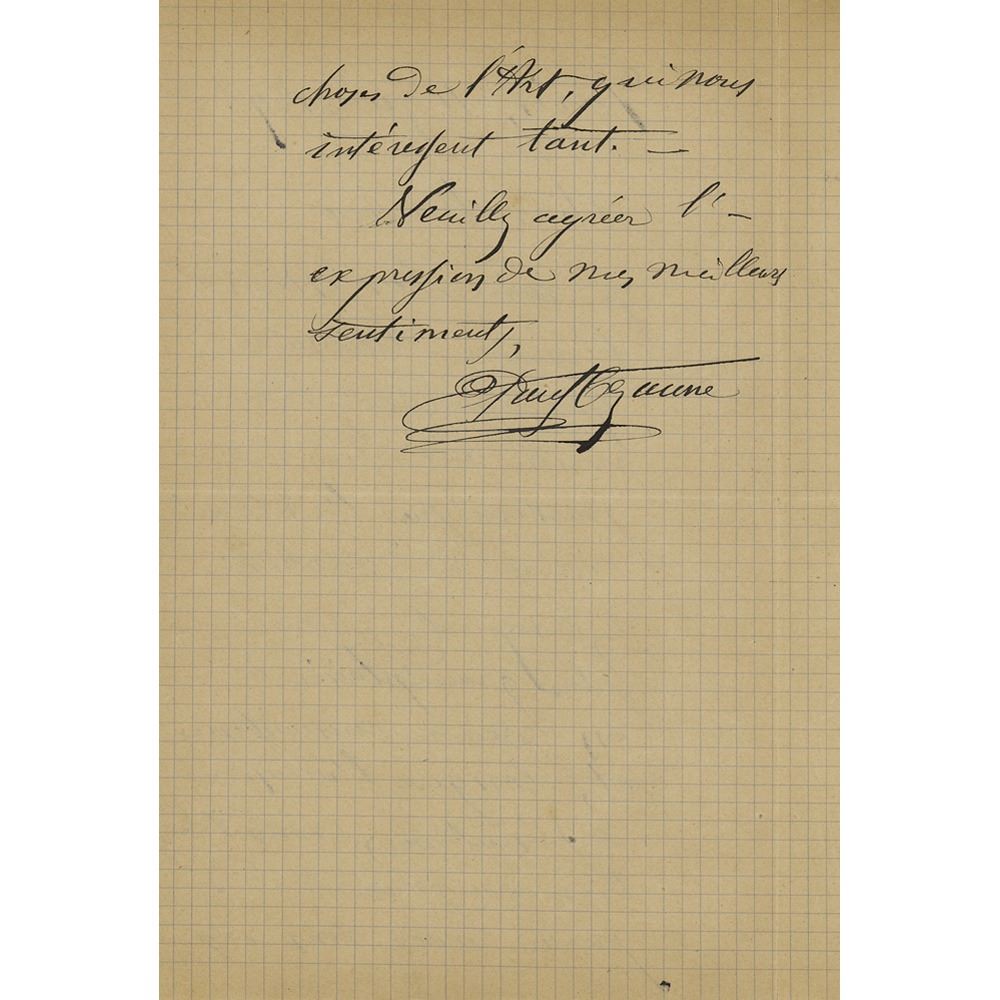 choses de l'Art, qui nous
intéressent tant. —
Veuillez agréer l'-
expression de mes meilleurs
sentiments,
Paul Cezanne